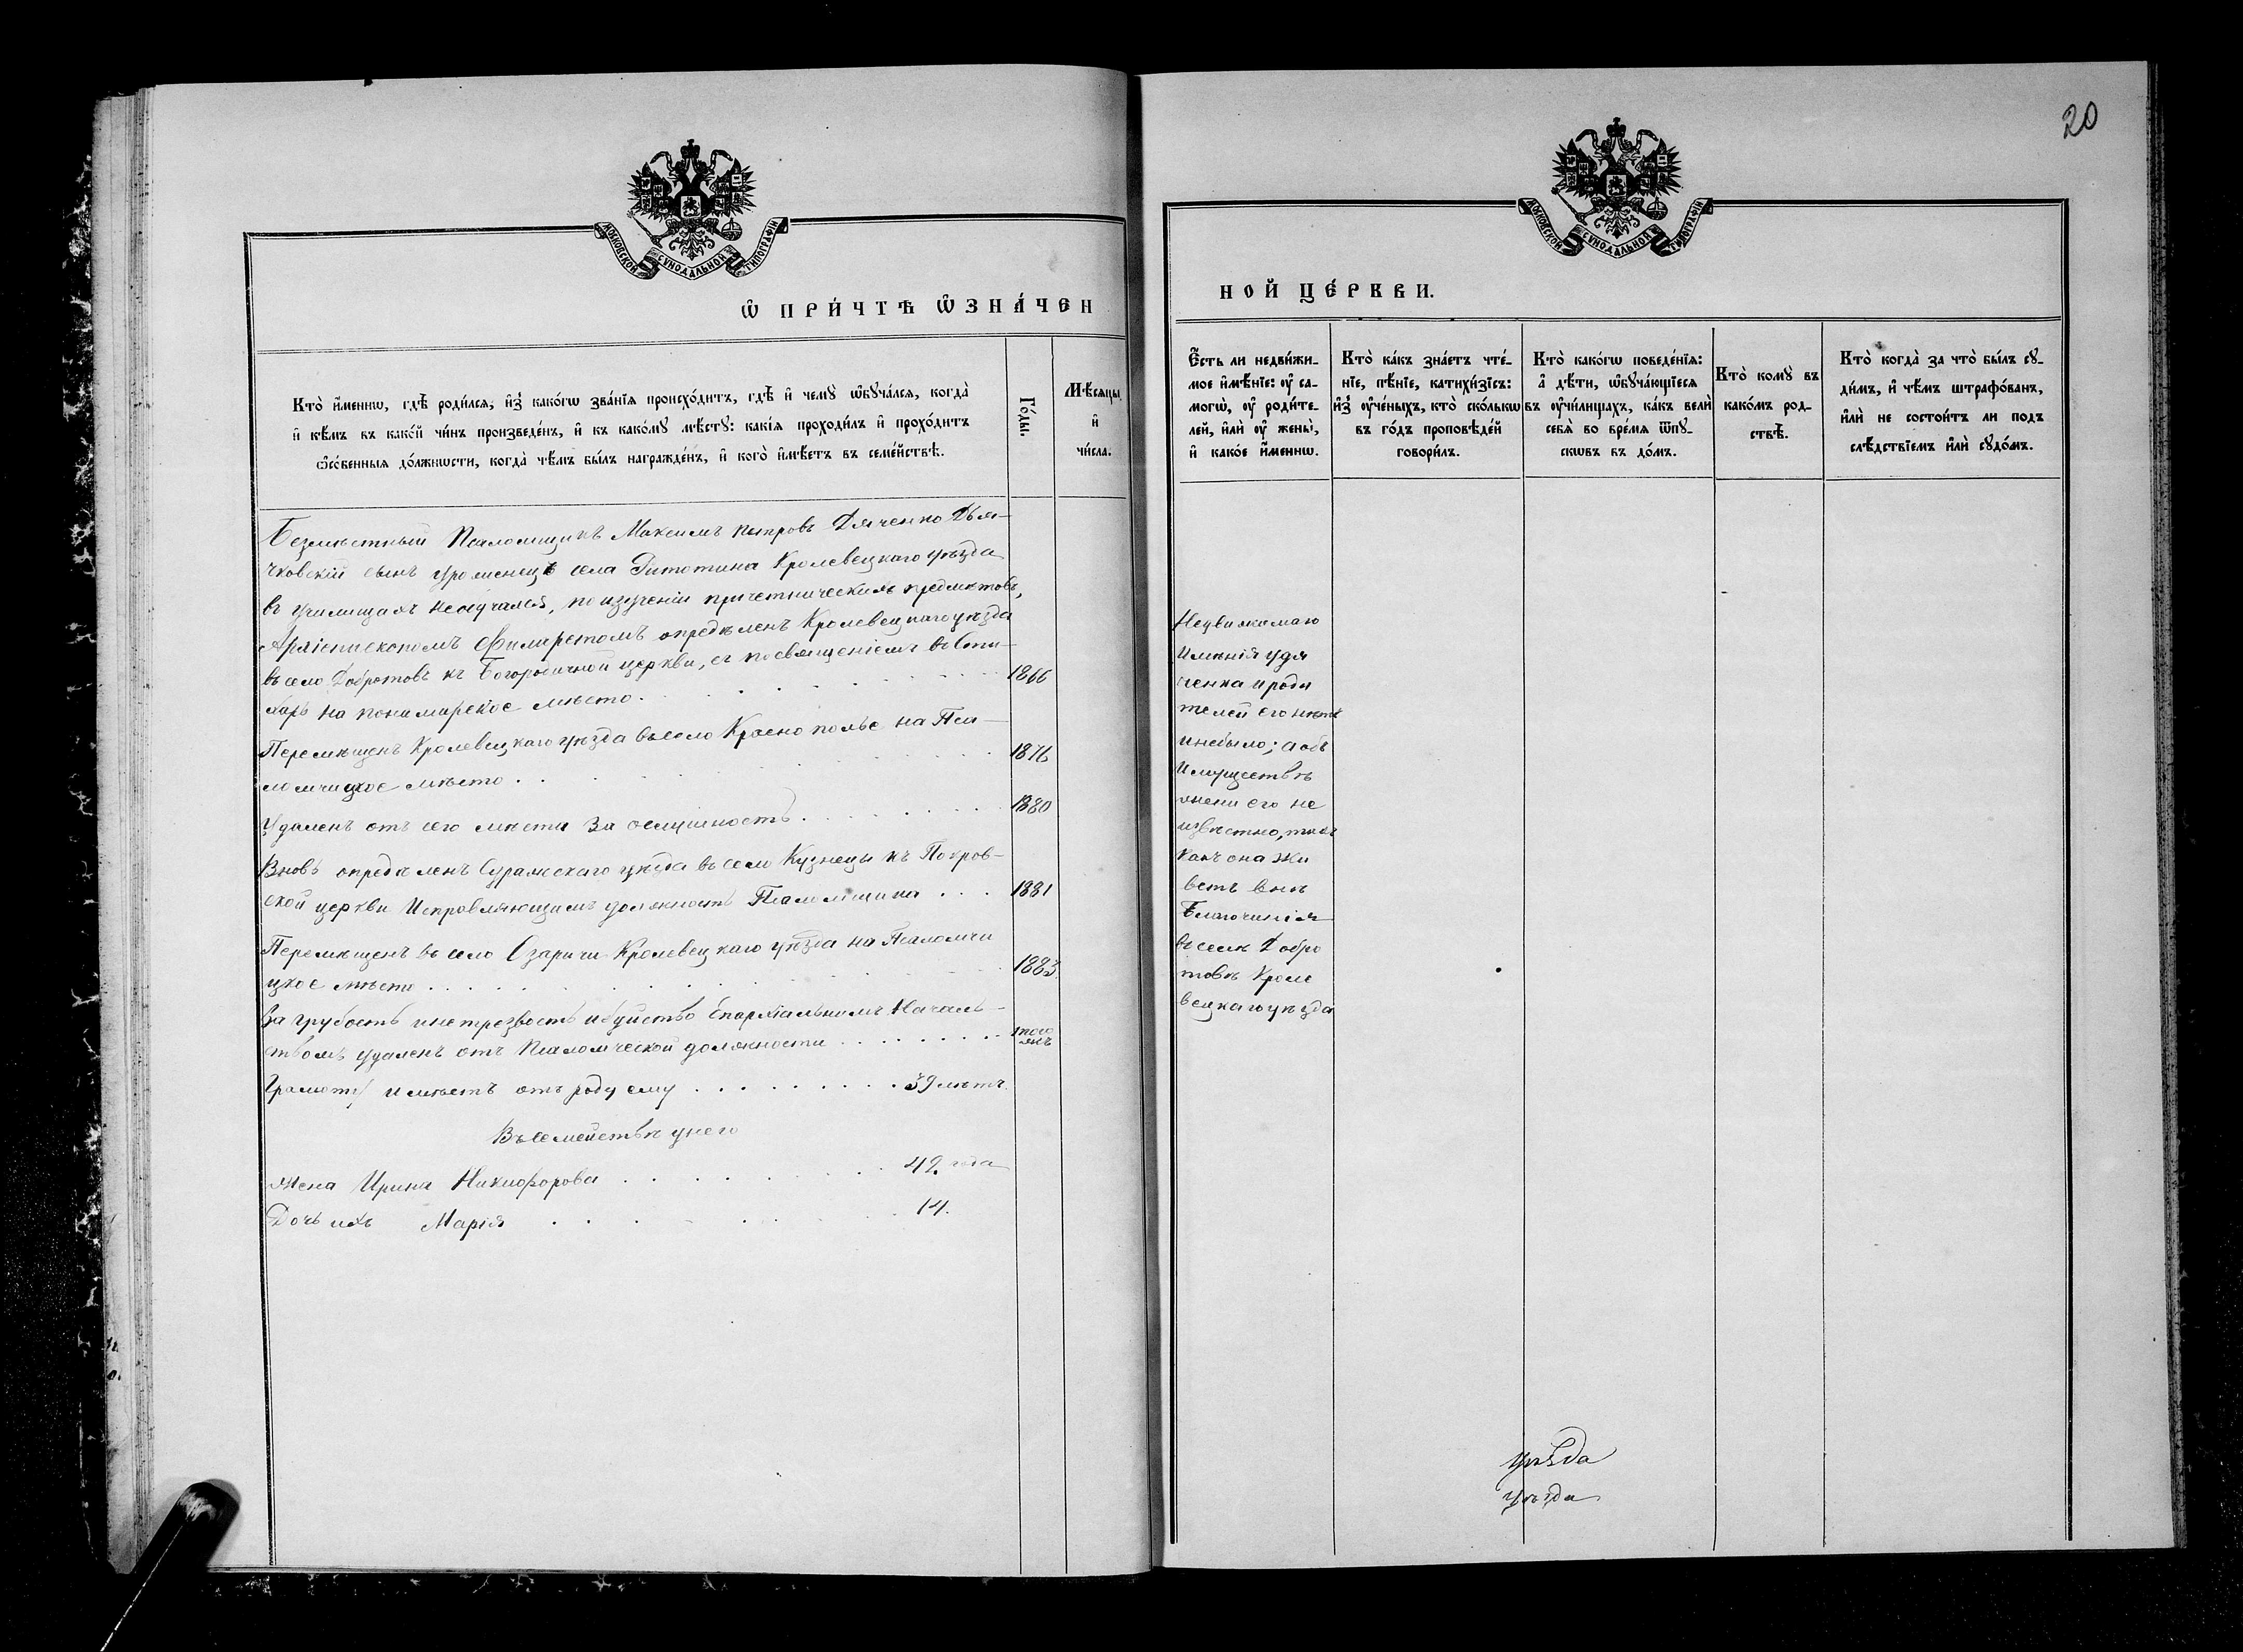 20
МОСКОВСКОЙ СѴНОДАЛЬНОЙ ТИПОГРАФІИ
МОСКОВСКОЙ СѴНОДАЛЬНОЙ ТИПОГРАФІИ
Ѡ҆ ПРИ́ЧТѢ Ѡ҆ЗНА́ЧЕН
Кто̀ и҆́меннѡ, гдѣ̀ роди́лсѧ, и҆з̾ како́гѡ зва́нїѧ происхо́дитъ, гдѣ̀ и҆ чемꙋ̀ ѡ҆бꙋча́лсѧ, когда̀
и҆ кѣ́мъ въ како́й чи́нъ произведе́нъ, и҆ къ како́мꙋ мѣ́стꙋ: какі́ѧ проходи́лъ и҆ прохо́дитъ
ѻ҆со́бенныѧ до́лжнѡсти, когда̀ чѣ́мъ бы́лъ награжде́нъ, и҆ кого̀ и҆мѣ́етъ въ семе́йствѣ.
Го́ды.
Мѣ́сѧцы
и҆
чи́сла.
Безмѣстный Псаломщикъ Максимъ Петровъ Дяченко Дья-
чковскій сынъ уроженецъ села Кролевецкаго уѣзда
въ училищахъ необучался, по изученіи причетническихъ предметовъ,
Архіепископомъ Филаретомъ опредѣленъ Кролевецкаго уѣзда
въ село Добротовъ къ Богородичной церкви, съ посвященіемъ въ Сти-
харь на пономарское мѣсто. 1866
Перемѣщенъ Кролевецкаго уѣзда въ село Краснополье на Пса-
ломчицкое мѣсто 1876
Удаленъ отъ сего мѣста за ослушность 1880
Вновь опредѣленъ Суражскаго уѣзда въ село Кузнецы къ Покров-
ской церкви Исправляющимъ должность Псаломщика 1881
Перемѣщенъ въ село Озаричи Кролевецкаго уѣзда на Псаломчи
цкое мѣсто 1883.
За грубость инетрезвость ибуйство Епархіальнымъ Началь-
ствомъ удаленъ отъ Псаломческой должности того
жъ
Грамоту имѣетъ отъ роду ему 39 лѣтъ.
Въ семействѣ унего
Жена Ирина Никифорова 42 года
Дочь ихъ Марія 14.
НОЙ ЦЕ́РКВИ.
Е҆́сть ли недви́жи-
мое и҆мѣ́нїе: ᲂу҆ са-
могѡ̀, ᲂу҆ роди́те-
лей, и҆лѝ ᲂу҆ жены̀,
и҆ како́е и҆́меннѡ.
Кто̀ ка́къ зна́етъ чте́-
нїе, пѣ́нїе, катихи́зїсъ:
и҆з̾ ᲂу҆че́ныхъ, кто̀ ско́лькѡ
въ го́дъ проповѣ́дей
говори́лъ.
Кто̀ како́гѡ поведе́нїѧ:
а҆ дѣ́ти, ѡ҆бꙋча́ющїесѧ
въ ᲂу҆чи́лищахъ, ка́къ велѝ
себѧ̀ во вре́мѧ ѿпꙋ-
скѡвъ въ до́мъ.
Кто̀ комꙋ̀ въ
како́мъ род-
ствѣ̀.
Кто̀ когда̀ за что̀ бы́лъ сꙋ-
ди́мъ, и҆ чѣ́мъ штрафо́ванъ,
и҆лѝ не состои́тъ ли подъ
слѣ́дствїемъ и҆лѝ сꙋдо́мъ.
Недвижимаго
Имѣнія у Дя
ченка и роди
телей его нѣтъ
инебыло; а объ
Имуществѣ
жени его не
извѣстно, такъ
какъ она жи
ветъ внѣ
Благочинія
въ селѣ Добро
товѣ Кроле
вецкаго уѣзда
уѣзда
уѣзда